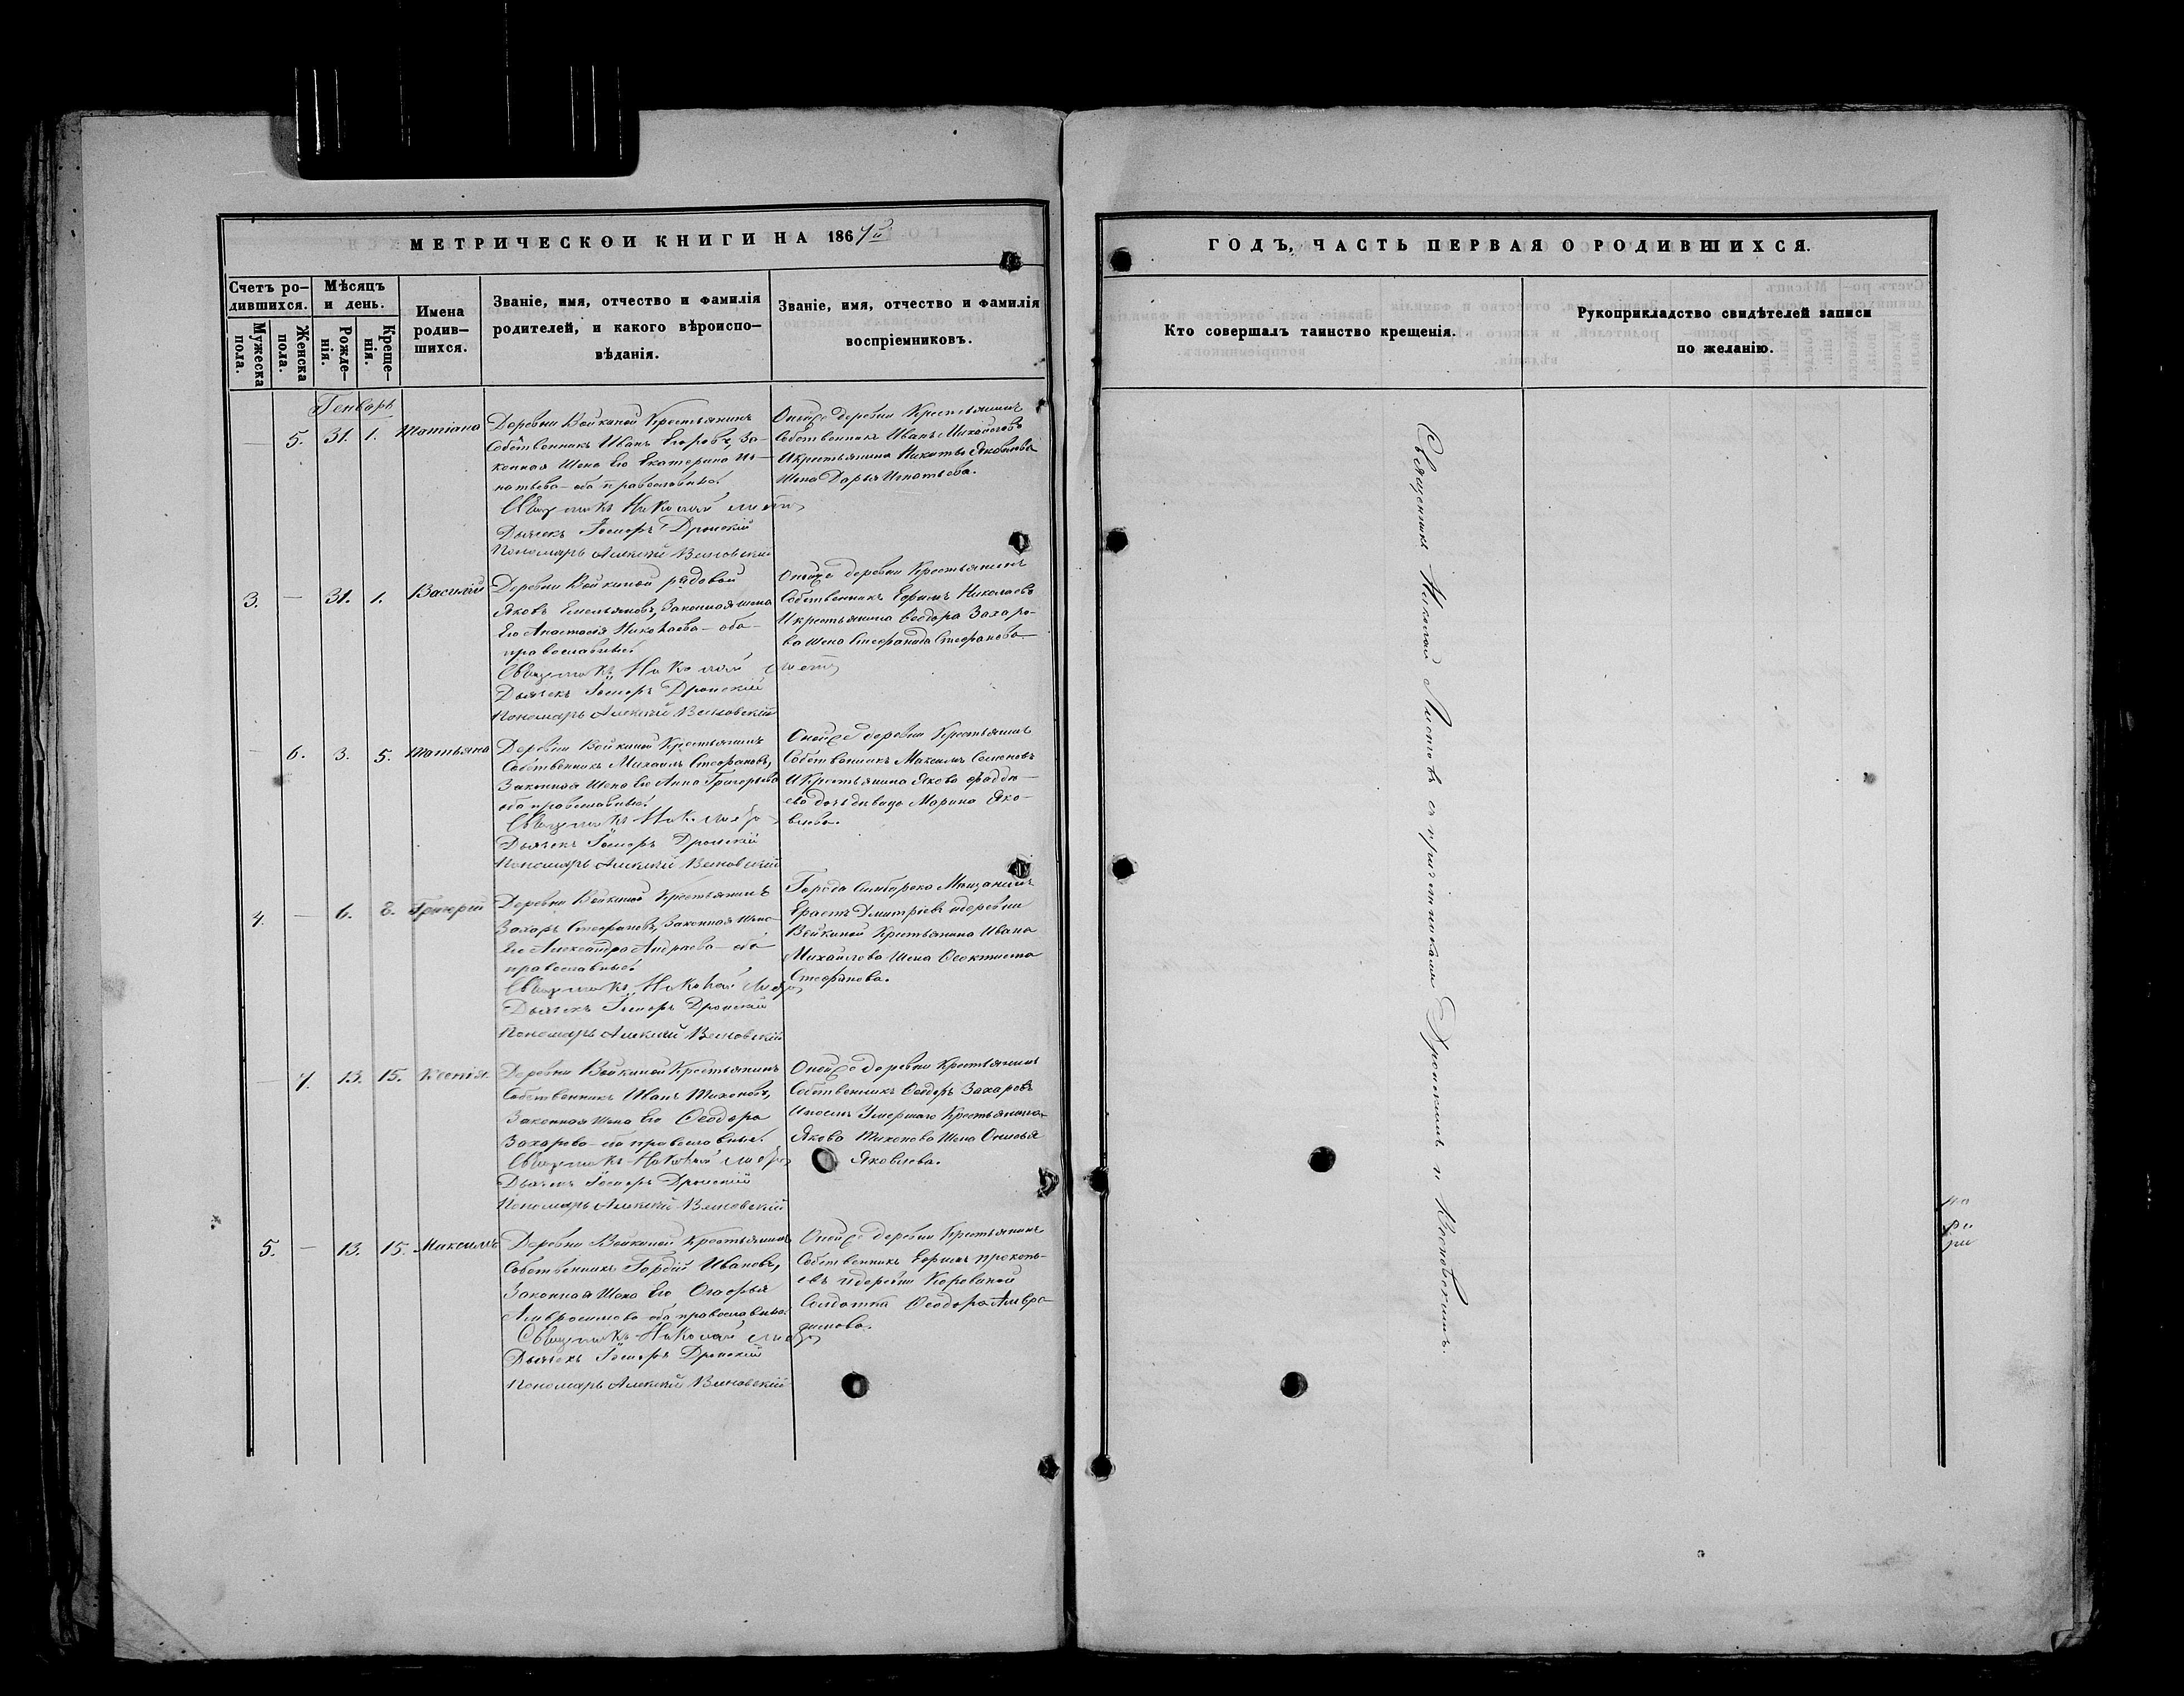 МЕТРИЧЕСКОЙ КНИГИ НА 1867й
Счетъ ро-
дившихся.
Мѣсяцъ
и день.
Мужеска
пола.
Женска
пола.
Рожде-
нія.
Креще-
нія.
Имена
родив-
шихся.
Званіе, имя, отчество и фамилія
родителей, и какого вѣроиспо-
вѣданія.
Званіе, имя, отчество и фамилія
воспріемниковъ.
Генварь
— 5. 31. 1. Татіана
Деревни Войкиной Крестьянинъ
Собственникъ Иванъ Егоровъ, За-
конная Жена Его Екатерина Иг-
натьева – оба православные.
Священникъ Николай
Дьячекъ Дронскій
Пономарь Алексѣй
Оной же деревни Крестьянинъ
Собственникъ Иванъ Михайловъ
И крестьянина Никиты Яковлева
Жена Дарья Игнатьева.
3. — 31. 1. Василій
Деревни Войкиной рядовой
Яковъ Емельяновъ, Законная жена
Его Анастасія Николаева – оба
православные.
Священникъ Николай
Дьячекъ Дронскій
Пономарь Алексѣй
Оной же деревни Крестьянинъ
Собственникъ Ефимъ Николаевъ
И крестьянина Ѳеодора Захаро-
ва жена Стефанида Стефанова.
— 6. 3. 5. Татьяна
Деревни Войкиной Крестьянинъ
Собственникъ Михаилъ Стефановъ,
Законная Жена Его Анна Григорьева
оба православные.
Священникъ
Дьячекъ Дронскій
Пономарь Алексѣй
Оной же деревни Крестьянинъ
Собственникъ Максимъ Семеновъ
И Крестьянина Якова Фадде-
ева дочь дѣвица Марина Яко-
влева.
4. — 6. 8. Григорій
Деревни Войкиной Крестьянинъ
Захаръ Стефановъ, Законная Жена
Его Александра Андреева – оба
православные.
Священникъ Николай
Дьячекъ Дронскій
Пономарь Алексѣй
Города Симбирска Мѣщанинъ
Ерастъ Дмитріевъ и деревни
Войкиной Крестьянина Ивана
Михайлова Жена Ѳеоктиста
Стефанова.
— 7. 13. 15. Ксенія.
Деревни Войкиной Крестьянинъ
Собственникъ Иванъ Тихоновъ,
Законная Жена Его Ѳеодора
Захарова – оба православные.
Священникъ Николай
Дьячекъ Дронскій
Пономарь Алексѣй
Оной же деревни Крестьянинъ
Собственникъ Ѳеодоръ Захаровъ
Умершаго Крестьянина
Якова Тихонова Жена
Яковлева.
5. — 13. 15. Максимъ
Деревни Войкиной Крестьянинъ
Собственникъ Гордій Ивановъ,
Законная Жена Его
Амвросимова оба православные.
Священникъ Николай
Дьячекъ Дронскій
Пономарь Алексѣй
Оной же деревни Крестьянинъ
Собственникъ Ефимъ Прокопь-
евъ и деревни Коровиной
Солдатка Ѳеодора Амвро-
симова.
ГОДЪ, ЧАСТЬ ПЕРВАЯ О РОДИВШИХСЯ.
Кто совершалъ таинство крещенія.
Рукоприкладство свидѣтелей записи
по желанію.
Священникъ Николай Листовъ съ причетниками Дронскимъ и